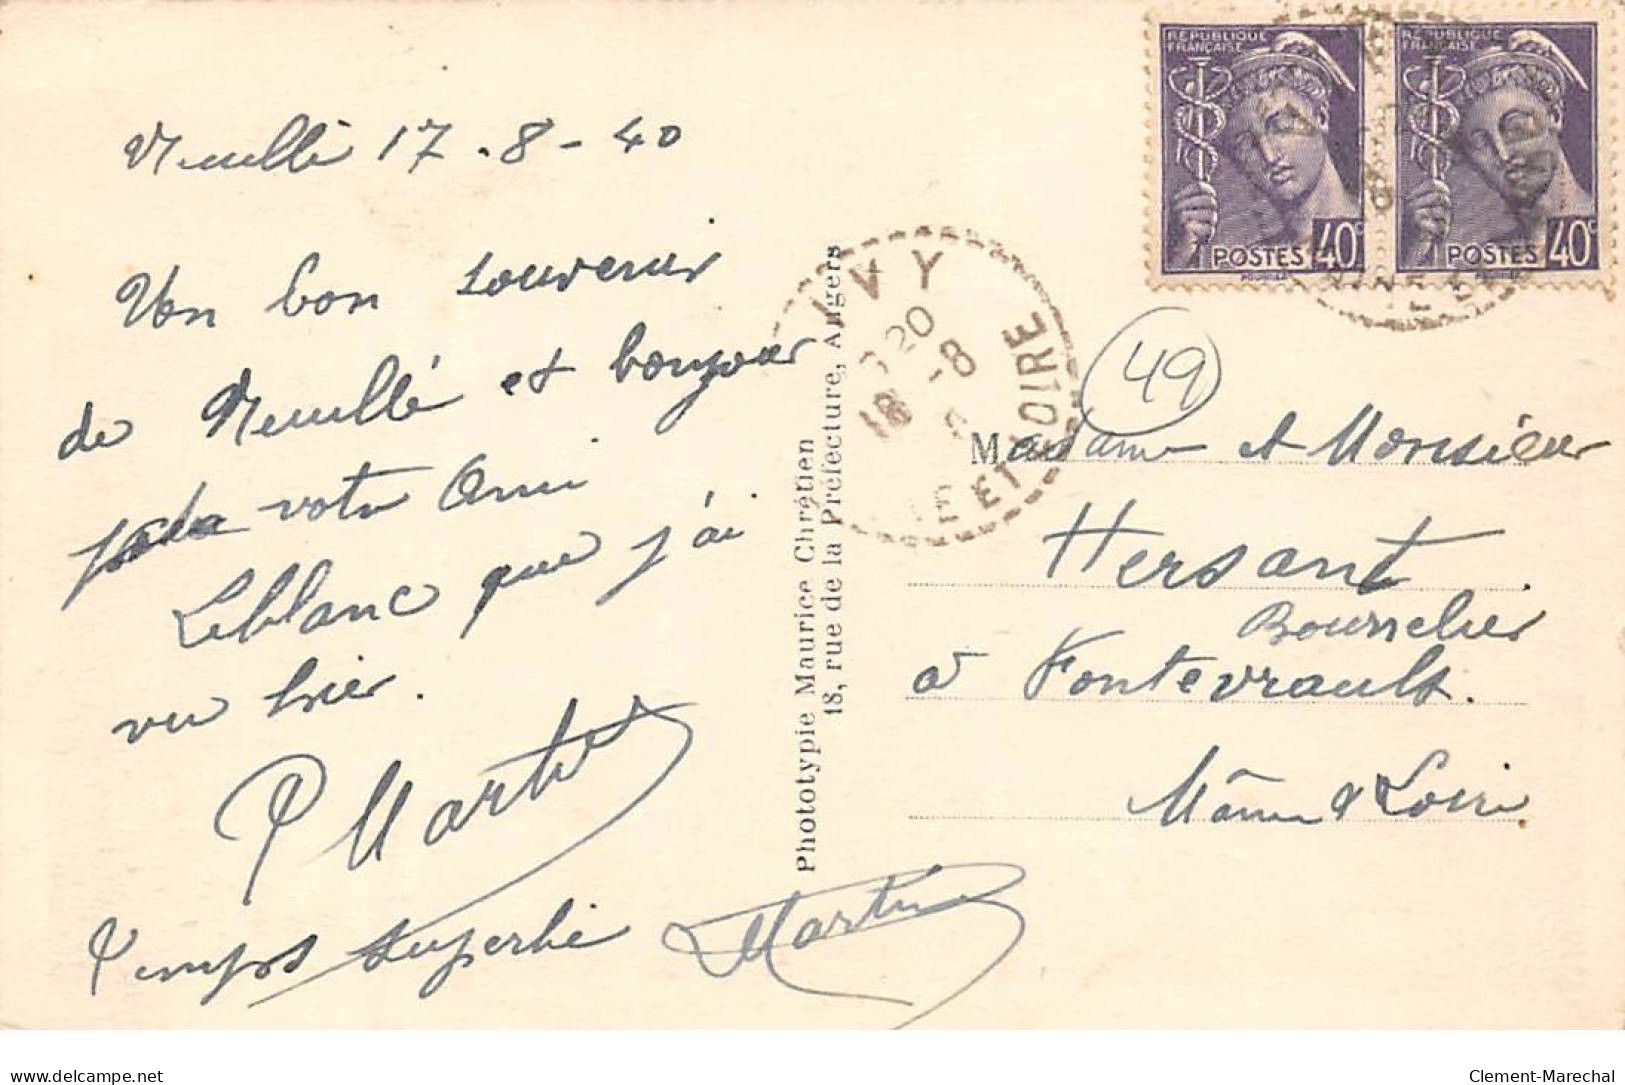 Neuillé 17-8-40
Un bon souvenir
de Neuillé et bonjour
votre Ami
Leblanc que j'ai
vu hier.
P Martin
Temps superbe Martin
Phototypie Maurice Chrétien
18, rue de la Préfecture, Angers
RÉPUBLIQUE
FRANÇAISE
POSTES 40c
RÉPUBLIQUE
FRANÇAISE
POSTES 40c
VIVY
20
18 -8
ET LOIRE
49
Madame et Monsieur
Hersant
Bourrelier
à Fontevrault.
Maine & Loire
www.delcampe.net
Clement-Marechal